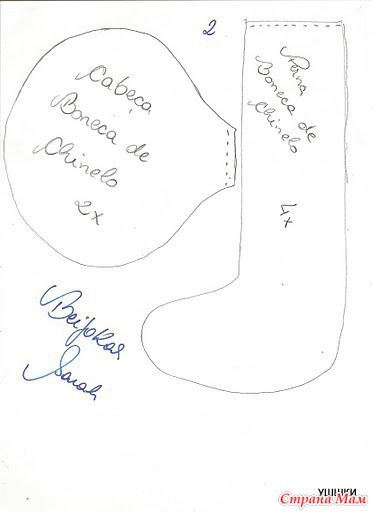 2
Cabeça
Boneca de
Chinelo
2x
Perna
Boneca de
Chinelo
4x
Beijokas
Sarah
УШКИ
Страна Мам